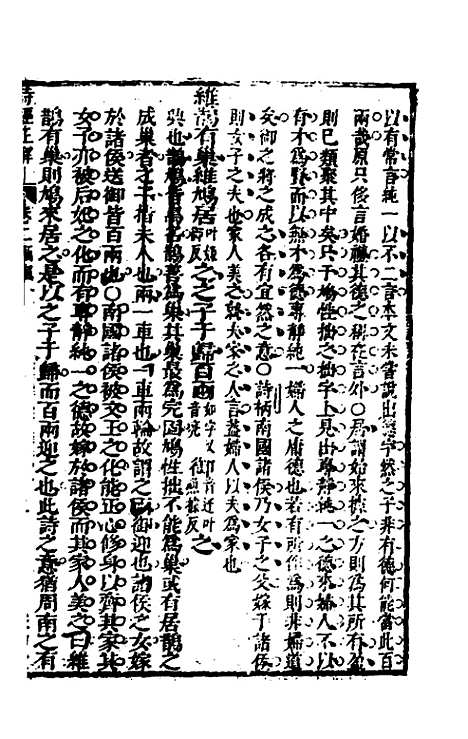 以有常言純一以不二言本文未嘗說出德字然之子非有德何能當此百
兩哉原只侈言婚禮其德之稱在言外○居謂始來據之方則為其所有盈
則已類聚其中矣只于鳩性拙之拙字上見出專靜純一之德來婦人不以
有才為賢而以無才為德專靜純一婦人之庸德也若有所作為則非婦道
矣御之將之成之各有宜然之意○詩柄南國諸侯乃女子之父嫁于諸侯
則女子之夫也家人美之夫家之人言蓋婦人以夫為家也
維鵲有巢維鳩居之之子于歸百兩御之
興也鵲鳩皆鳥名鵲善為巢其巢最為完固鳩性拙不能為巢或有居鵲之
成巢者之子指夫人也兩一車也一車兩輪故謂之兩御迎也諸侯之女嫁
於諸侯送御皆百兩也○南國諸侯被文王之化能正心修身以齊其家其
女子亦被后妃之化而有專靜純一之德故嫁於諸侯而其家人美之曰維
鵲有巢則鳩來居之是以之子于歸而百兩迎之也此詩之意猶周南之有